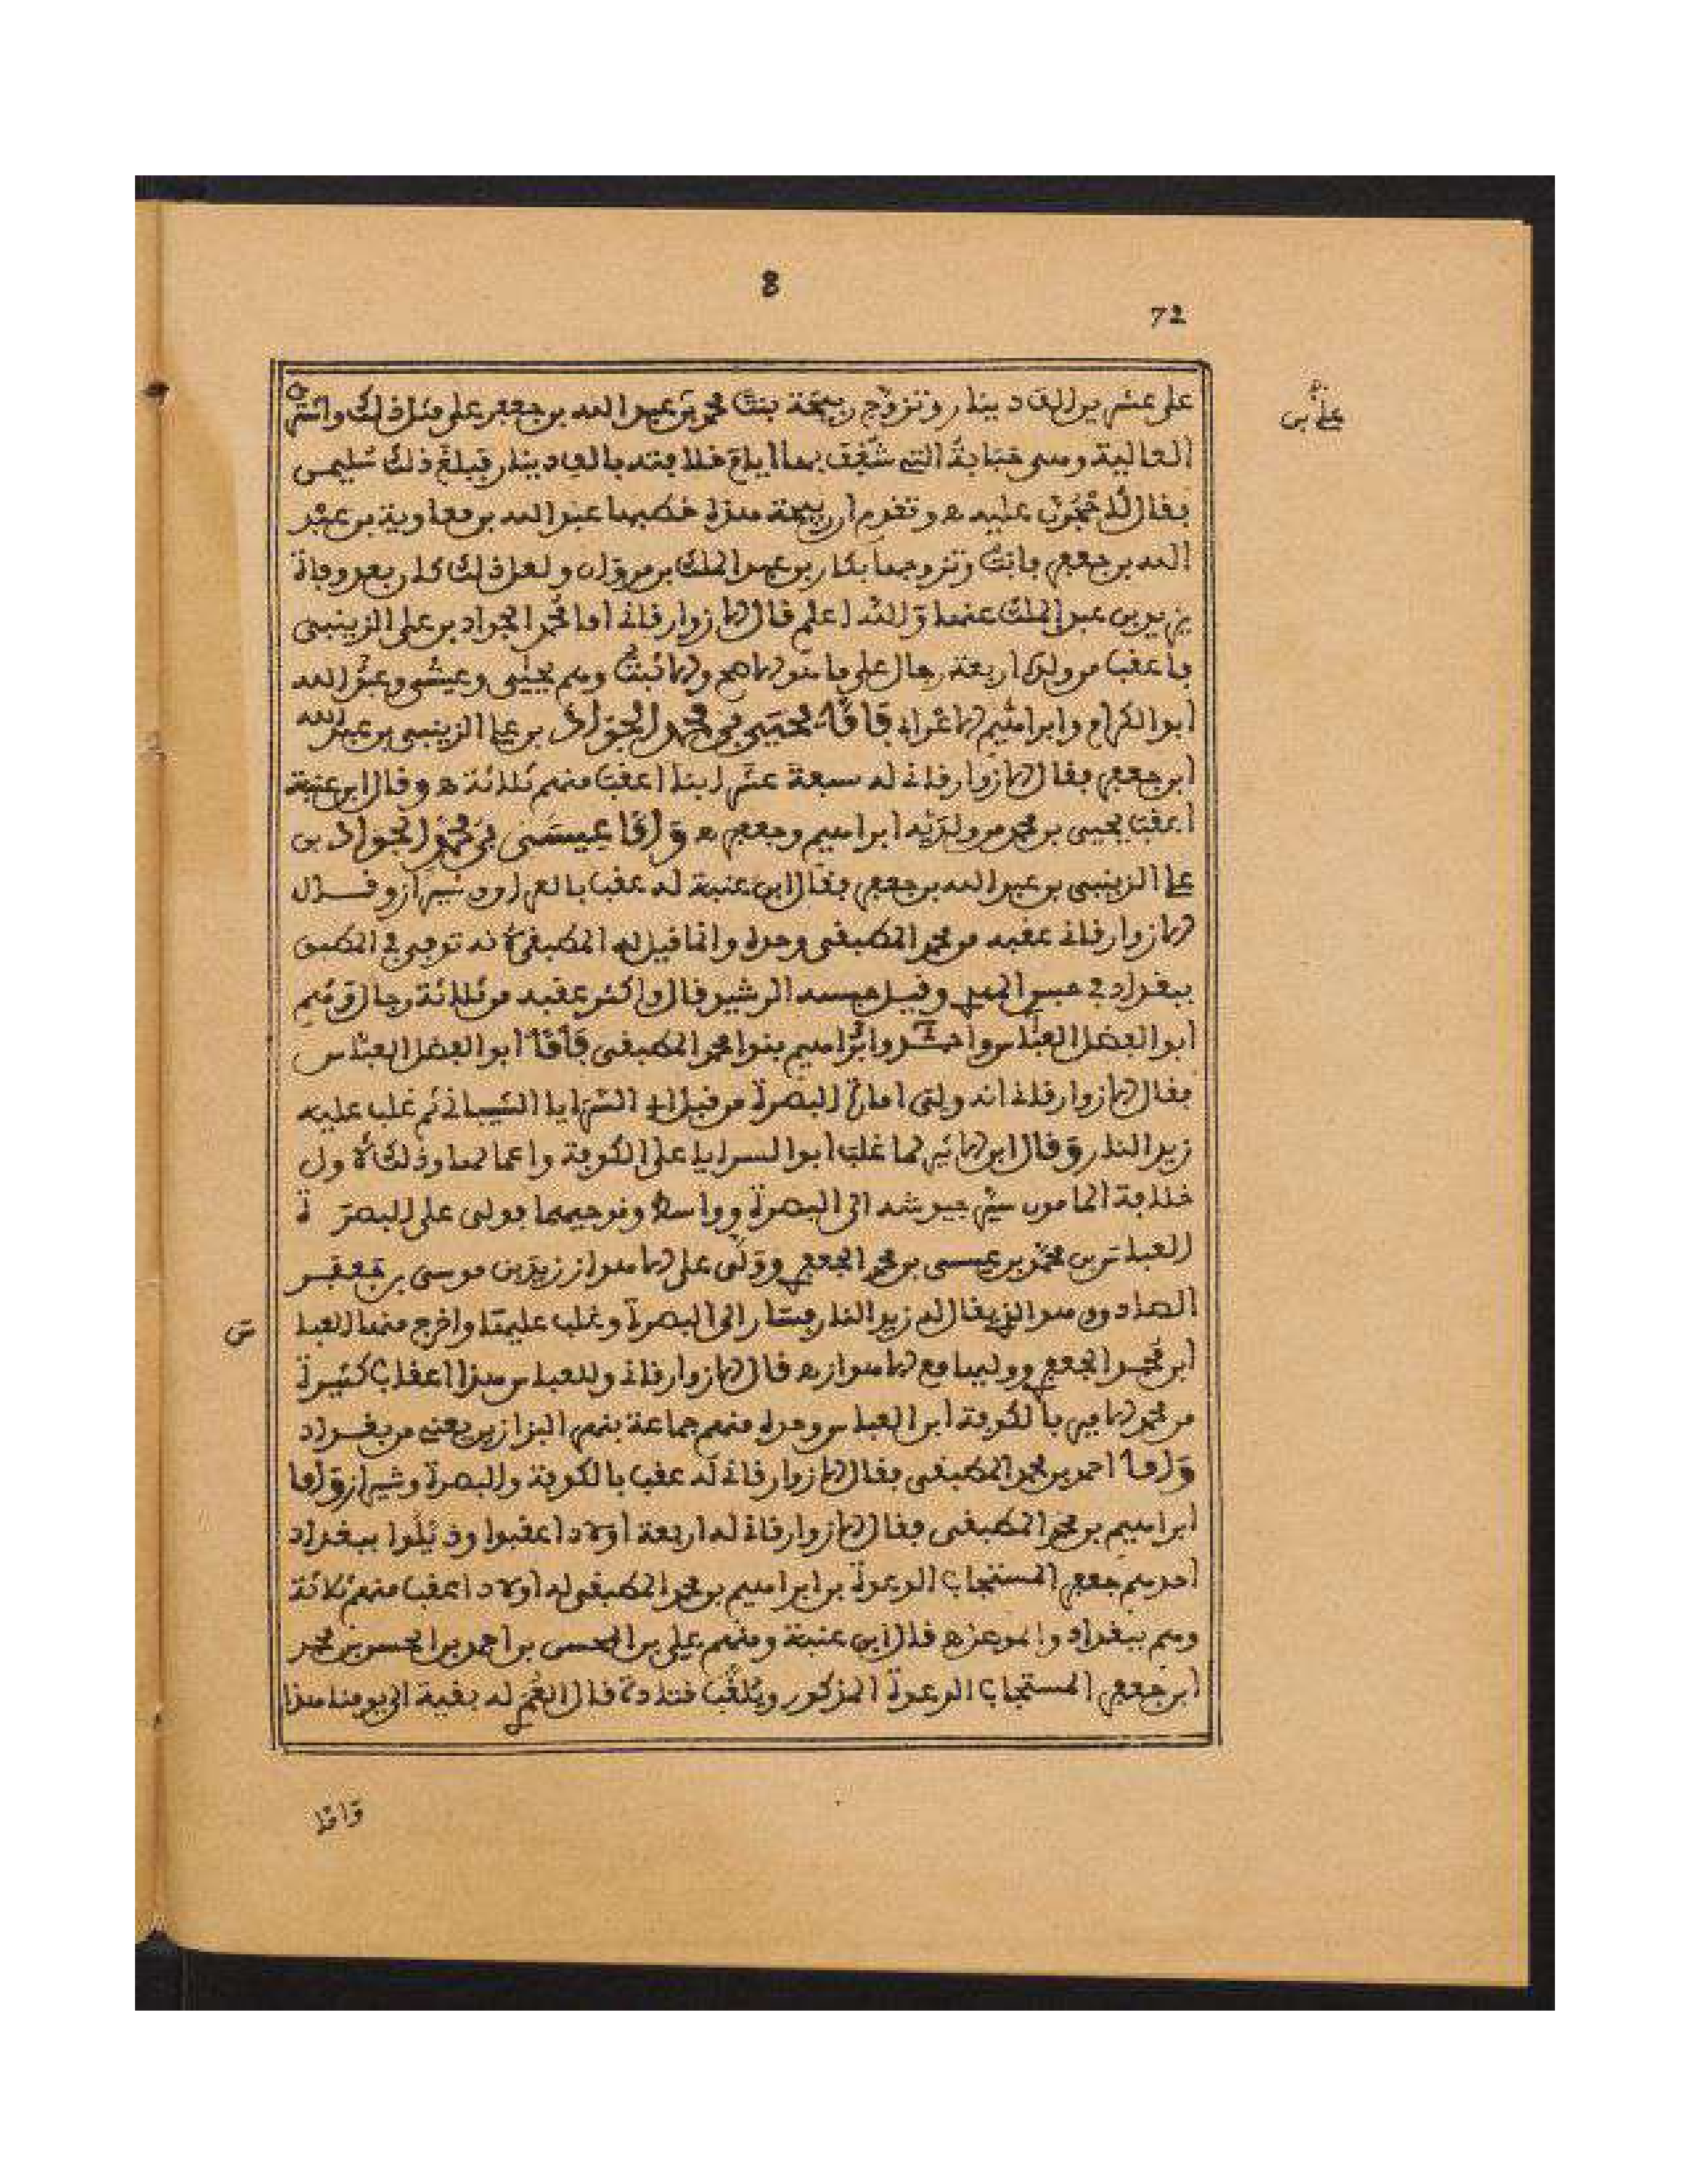 8
72
على عشرين الف دينار وتزوج ربيحة بنت محمد بن عبد الله بن جعفر على مثل ذلك واشترى
علي بن
العالية وهي حبابة التي شغف بها اياغ فلا بعد بالف دينار فبلغ ذلك سليمن
فقال لأحجرن عليه ه وتقدم ان ربيحة هذه خطبها عبد الله بن معاوية بن عبد
الله بن جعفر فابت وتزوجها بكار بن عبد الملك بن مروان ولعل ذلك كان بعد وفاة
يزيد بن عبد الملك عنها والله اعلم قال الازوارقاني اما محمد الجواد بن علي الزينبي
فاعقب من ولده اربعة رجال على ما هو الاصح والاثبت وهم يحيى وعيسى وعبد الله
ابو الكرام وابراهيم الاعرابي فاما يحيى بن محمد الجواد بن علي الزينبي بن عبد الله
ابن جعفر فقال الازوارقاني له سبعة عشر ابنا اعقب منهم ثلاثة ه وقال ابن عنبة
اعقب يحيى بن محمد من ولديه ابراهيم وجعفر ه واما عيسى بن محمد الجواد بن
علي الزينبي بن عبد الله بن جعفر فقال ابن عنبة له عقب بالعراق وشيراز وقال
الازوارقاني عقبه من محمد المطبقي وحده وانما قيل له المطبقي لانه توفي في المطبق
ببغداد في حبس المهدي وقيل حبسه الرشيد قال واكثر عقبه من ثلاثة رجال وهم
ابو الفضل العباس واحمد وابراهيم بنوا محمد المطبقي فاما ابو الفضل العباس
فقال الازوارقاني انه ولي امارة البصرة من قبل ابي السرايا الشيباني ثم غلب عليه
زيد النار وقال ابن الاثير لما غلب ابو السرايا على الكوفة واعمالها وذلك لأول
خلافة المامون سير جيوشه الى البصرة وواسط ونواحيهما فولى على البصرة
العباس بن محمد بن عيسى بن محمد الجعفري وولى على الاهواز زيد بن موسى بن جعفر
الصادق وهو الذي يقال له زيد النار فسار الى البصرة وغلب عليها واخرج منها العبا
س
ابن محمد الجعفري ووليها مع الاهواز ه قال الازوارقاني وللعباس هذا اعقاب كثيرة
من محمد الامير بالكوفة ابن العباس وحده منهم جماعة بنهر البزازين يعني من بغداد
واما احمد بن محمد المطبقي فقال الازوارقاني له عقب بالكوفة والبصرة وشيراز واما
ابراهيم بن محمد المطبقي فقال الازوارقاني له اربعة اولاد اعقبوا وذيلوا ببغداد
احدهم جعفر المستجاب الدعوة بن ابراهيم بن محمد المطبقي له اولاد اعقب منهم ثلاثة
وهم ببغداد قال ابن عنبة ومنهم علي بن الحسن بن احمد بن الحسن بن محمد
ابن جعفر المستجاب الدعوة المذكور ويلقب قتادة قال العمري له بقية الى يومنا هذا
واما